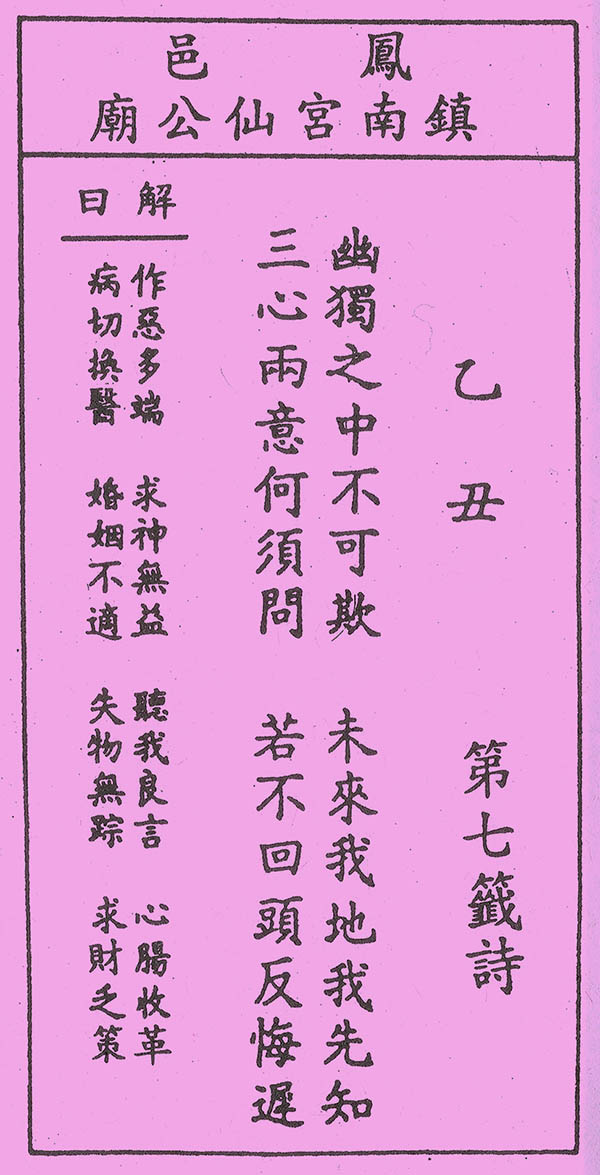 鳳邑
鎮南宮仙公廟
乙丑 第七籤詩
幽獨之中不可欺 未來我地我先知
三心兩意何須問 若不回頭反悔遲
解曰
作惡多端 求神無益 聽我良言 心腸收革
病切換醫 婚姻不適 失物無踪 求財乏策